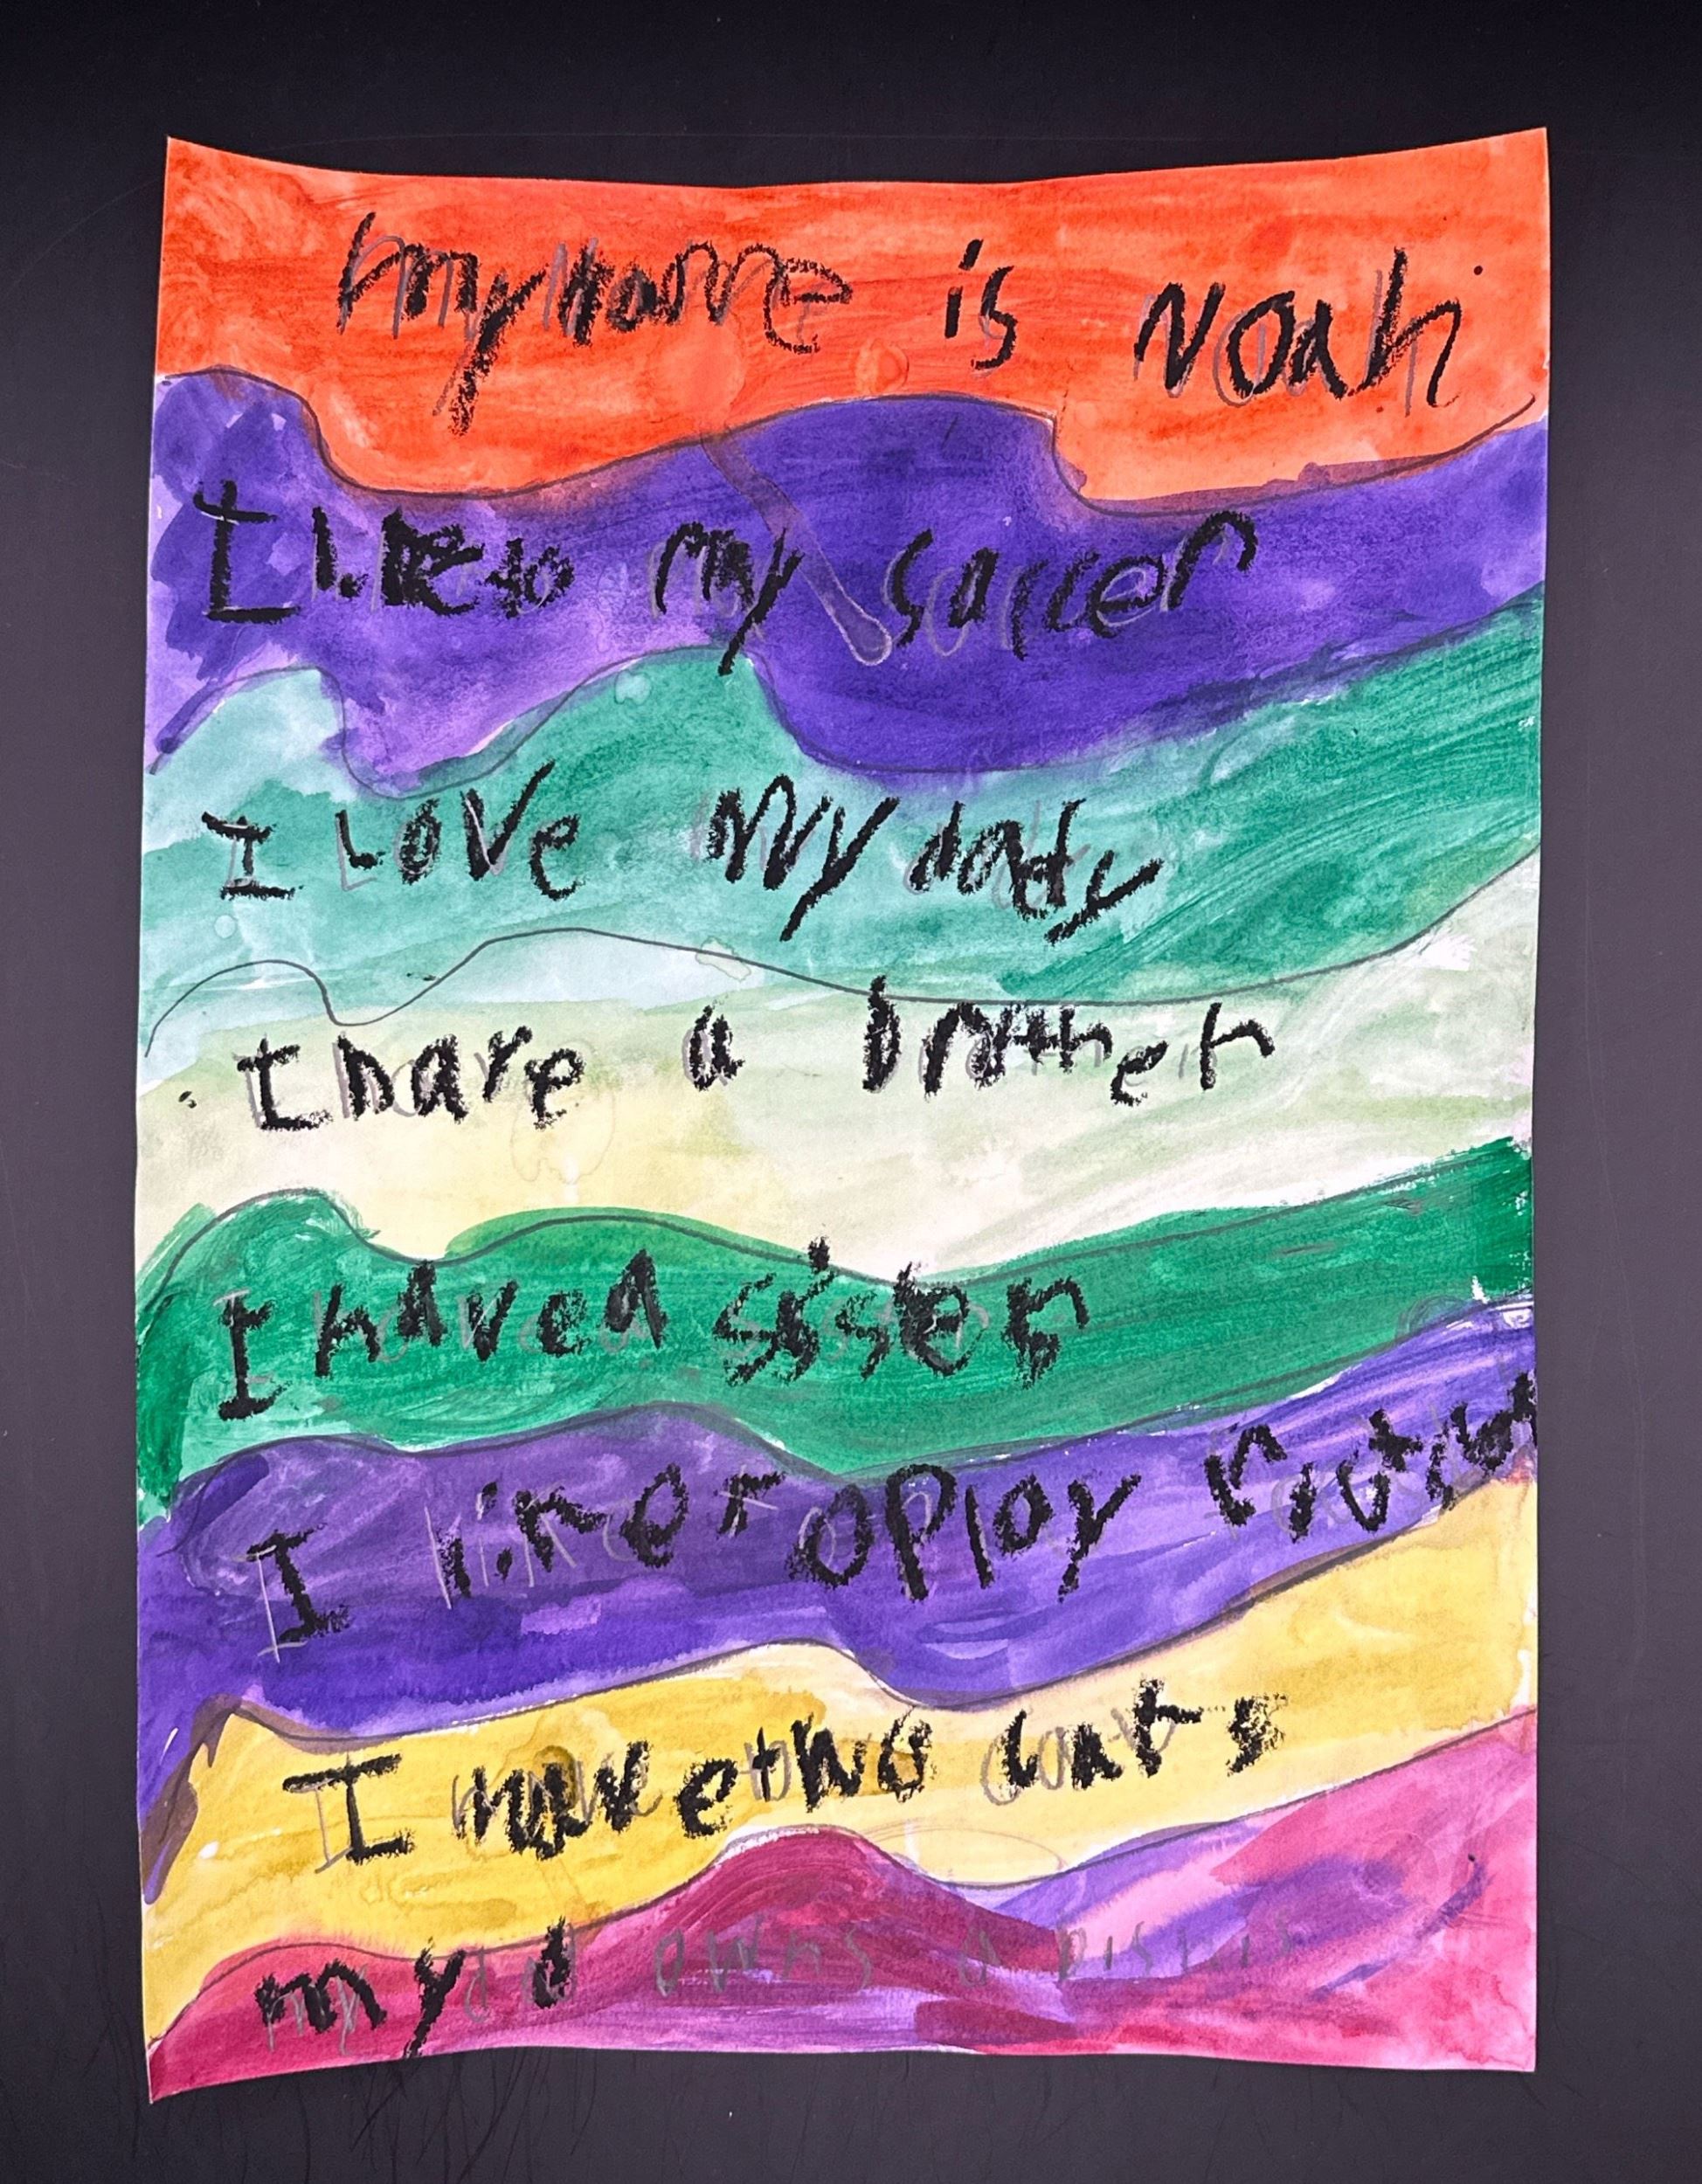 my name is Noah
I like to my soccer
I Love My dady
I have a brother
I have a sister
I like to play
I have two cats
my dad owns a